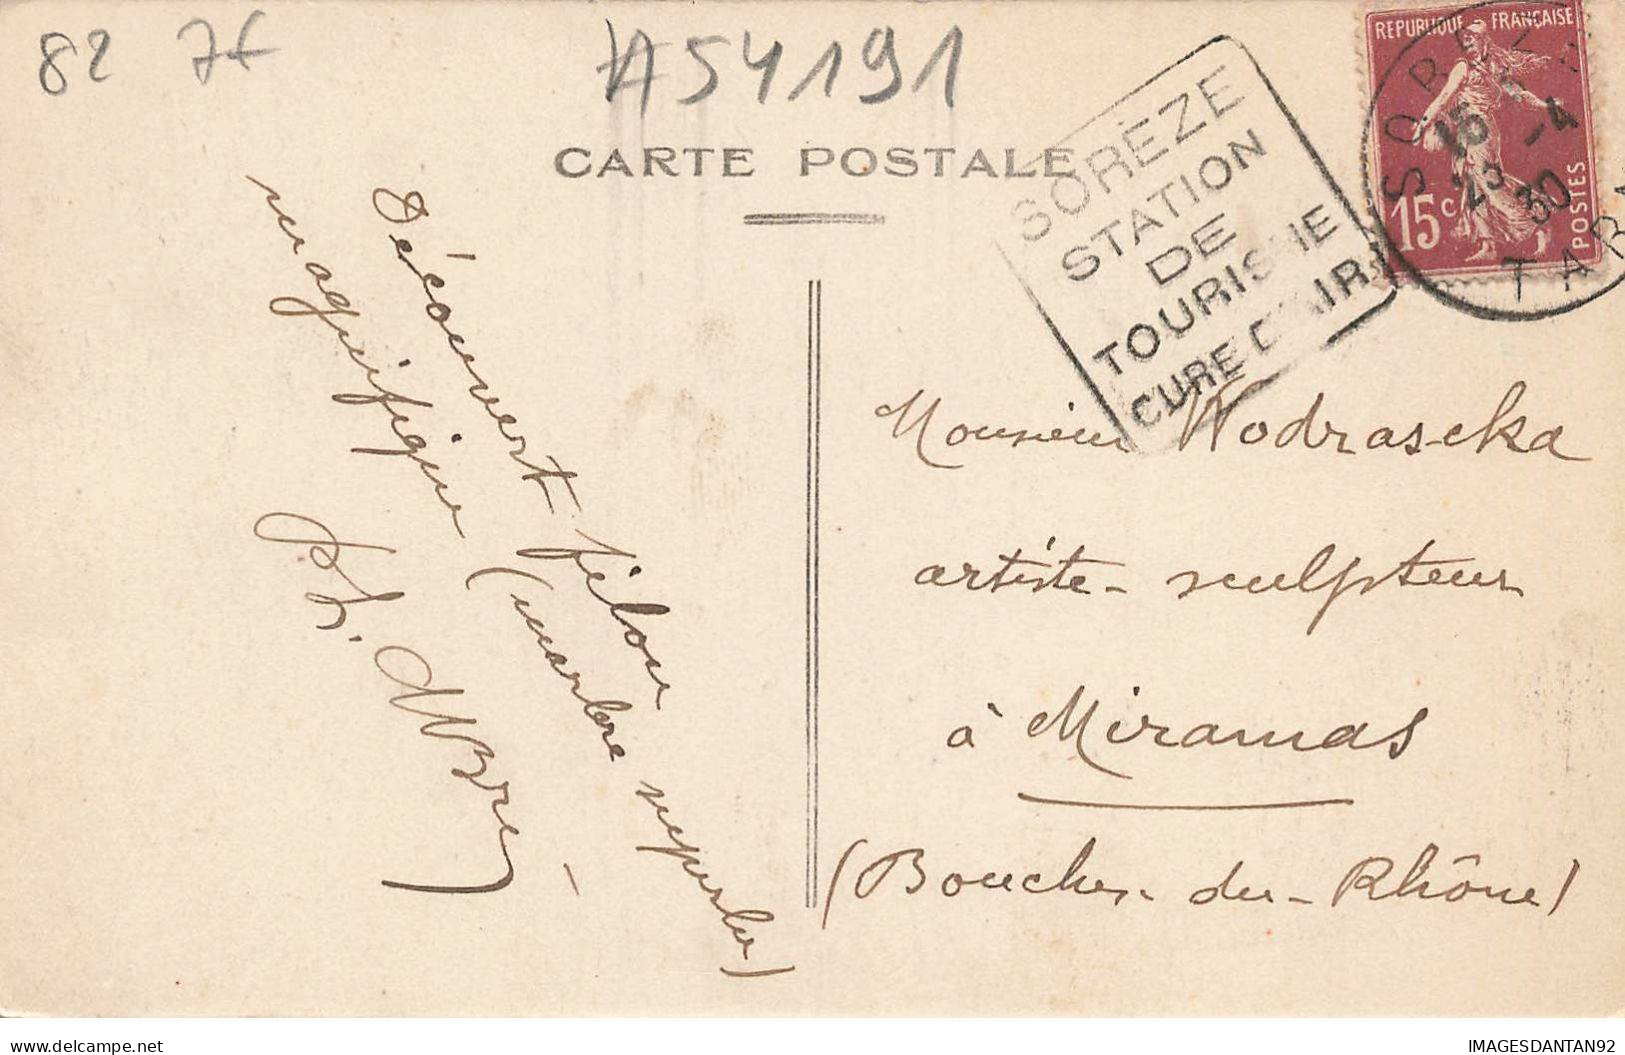 82 7€
A54191
CARTE POSTALE
SORÈZE
STATION
DE
TOURISME
CURE D'AIR
REPUBLIQUE FRANÇAISE
15c
POSTES
SORÈZE
15
23 -4
30
TARN
Découvert filon
magnifique (marbre superbe)
Monsieur Wodrascka
artiste-sculpteur
à Miramas
(Bouches-du-Rhône)
delcampe.net
IMAGESDANTAN92